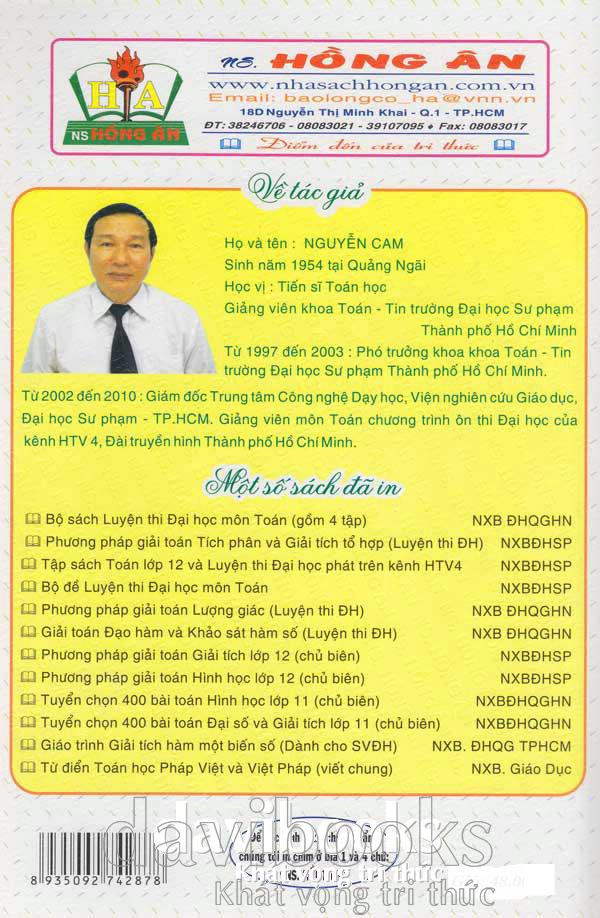 HA
NS HỒNG ÂN
NS. HỒNG ÂN
www.nhasachhongan.com.vn
Email: baolongco_ha@vnn.vn
18D Nguyễn Thị Minh Khai - Q.1 - TP.HCM
ĐT: 38246706 - 08083021 - 39107095 ♦ Fax: 08083017
Điểm đến của tri thức
Về tác giả
Họ và tên : NGUYỄN CAM
Sinh năm 1954 tại Quảng Ngãi
Học vị : Tiến sĩ Toán học
Giảng viên khoa Toán - Tin trường Đại học Sư phạm
Thành phố Hồ Chí Minh
Từ 1997 đến 2003 : Phó trưởng khoa khoa Toán - Tin
trường Đại học Sư phạm Thành phố Hồ Chí Minh.
Từ 2002 đến 2010 : Giám đốc Trung tâm Công nghệ Dạy học, Viện nghiên cứu Giáo dục,
Đại học Sư phạm - TP.HCM. Giảng viên môn Toán chương trình ôn thi Đại học của
kênh HTV 4, Đài truyền hình Thành phố Hồ Chí Minh.
Một số sách đã in
Bộ sách Luyện thi Đại học môn Toán (gồm 4 tập) NXB ĐHQGHN
Phương pháp giải toán Tích phân và Giải tích tổ hợp (Luyện thi ĐH) NXBĐHSP
Tập sách Toán lớp 12 và Luyện thi Đại học phát trên kênh HTV4 NXBĐHSP
Bộ đề Luyện thi Đại học môn Toán NXBĐHSP
Phương pháp giải toán Lượng giác (Luyện thi ĐH) NXB ĐHQGHN
Giải toán Đạo hàm và Khảo sát hàm số (Luyện thi ĐH) NXB ĐHQGHN
Phương pháp giải toán Giải tích lớp 12 (chủ biên) NXBĐHSP
Phương pháp giải toán Hình học lớp 12 (chủ biên) NXBĐHSP
Tuyển chọn 400 bài toán Hình học lớp 11 (chủ biên) NXBĐHQGHN
Tuyển chọn 400 bài toán Đại số và Giải tích lớp 11 (chủ biên) NXBĐHQGHN
Giáo trình Giải tích hàm một biến số (Dành cho SVĐH) NXB. ĐHQG TPHCM
Từ điển Toán học Pháp Việt và Việt Pháp (viết chung) NXB. Giáo Dục
davibooks
chúng tôi in chìm ở bìa 1 và 4 chữ:
Khát vọng tri thức
8 935092 742878